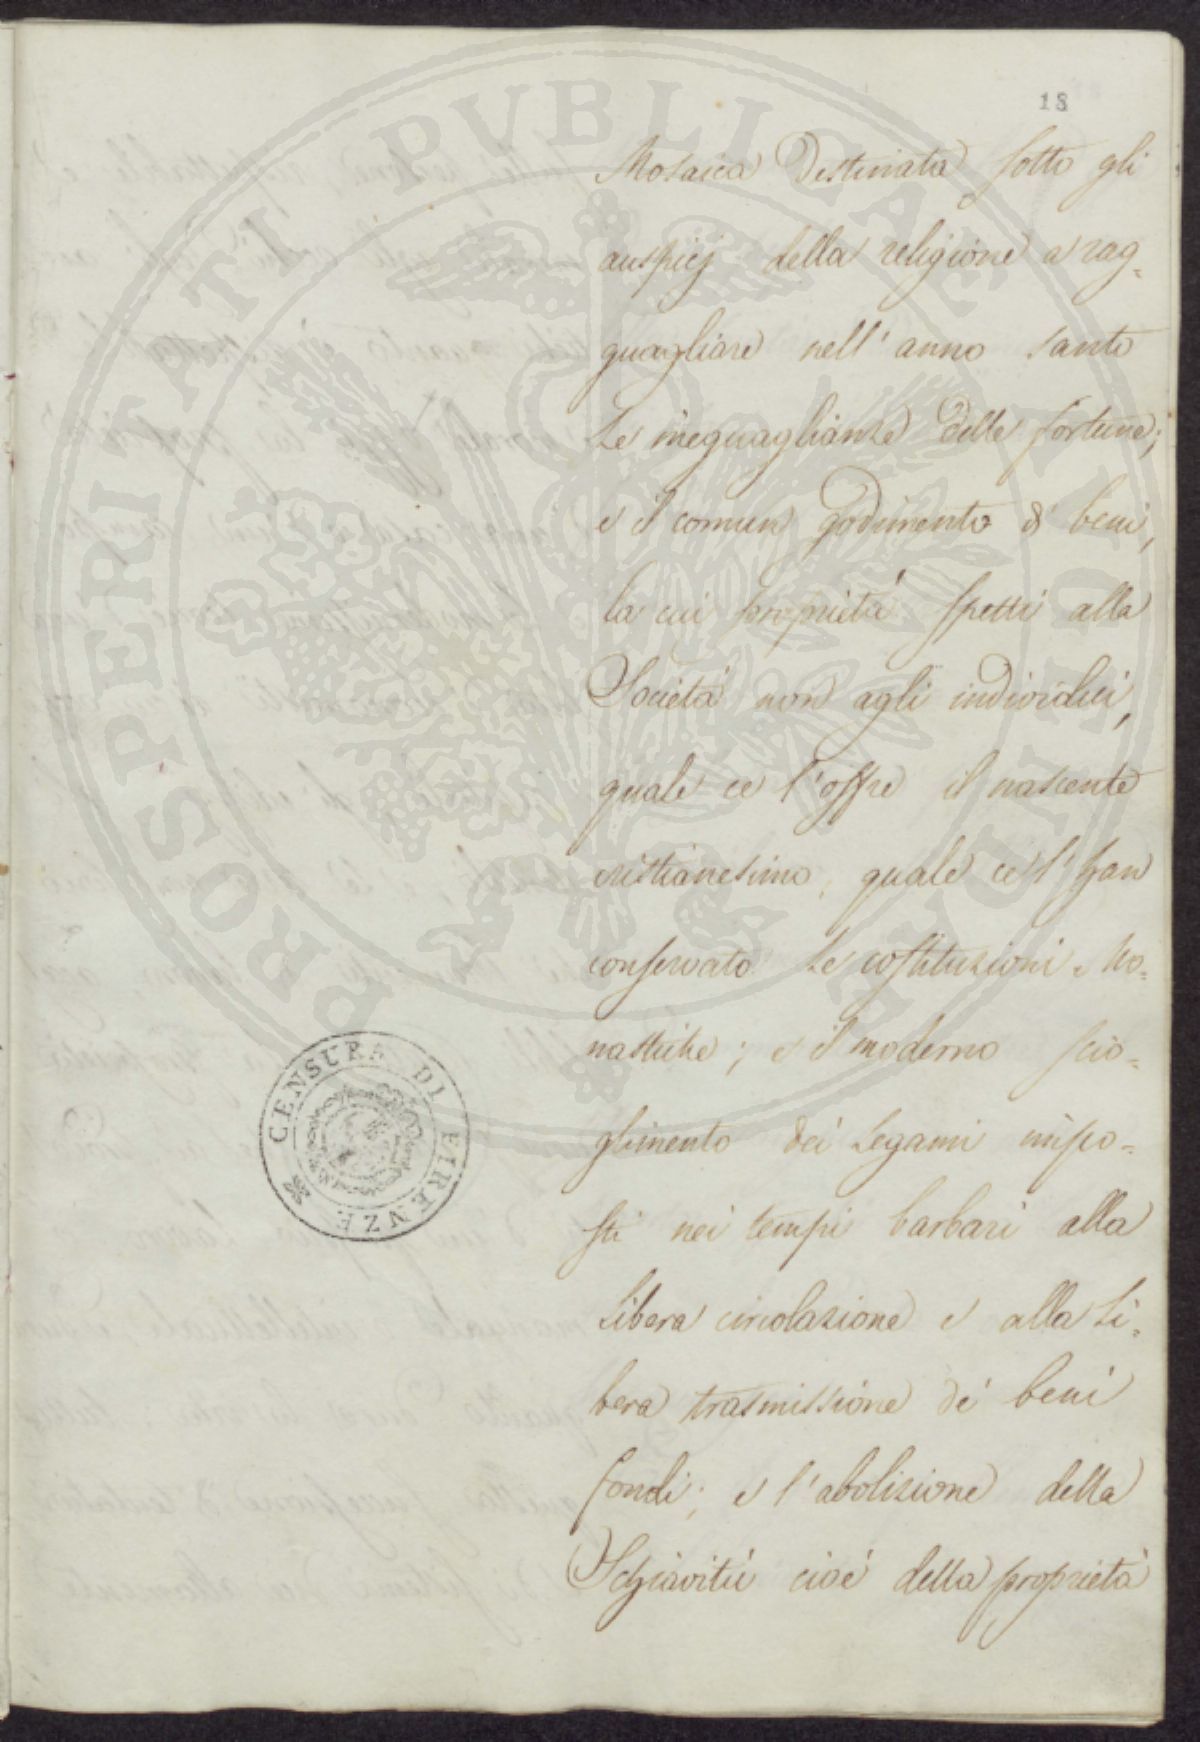 18
Mosaica destinata sotto gli
auspicj della religione a rag=
guagliare nell' anno santo
le ineguaglianze delle fortune;
e il comun godimento d' beni,
la cui proprietà spetti alla
Società non agli individui,
quale ce l'offre il nascente
cristianesimo, quale ce l' han
conservato le costituzioni Mo=
nastiche; e il moderno scio=
glimento dei legami impo=
sti nei tempi barbari alla
libera circolazione e alla li=
bera trasmissione dei beni
fondi; e l'abolizione della
Schiavitù cioè della proprietà
CENSURA DI FIRENZE
PROSPERITATI PUBLICAE